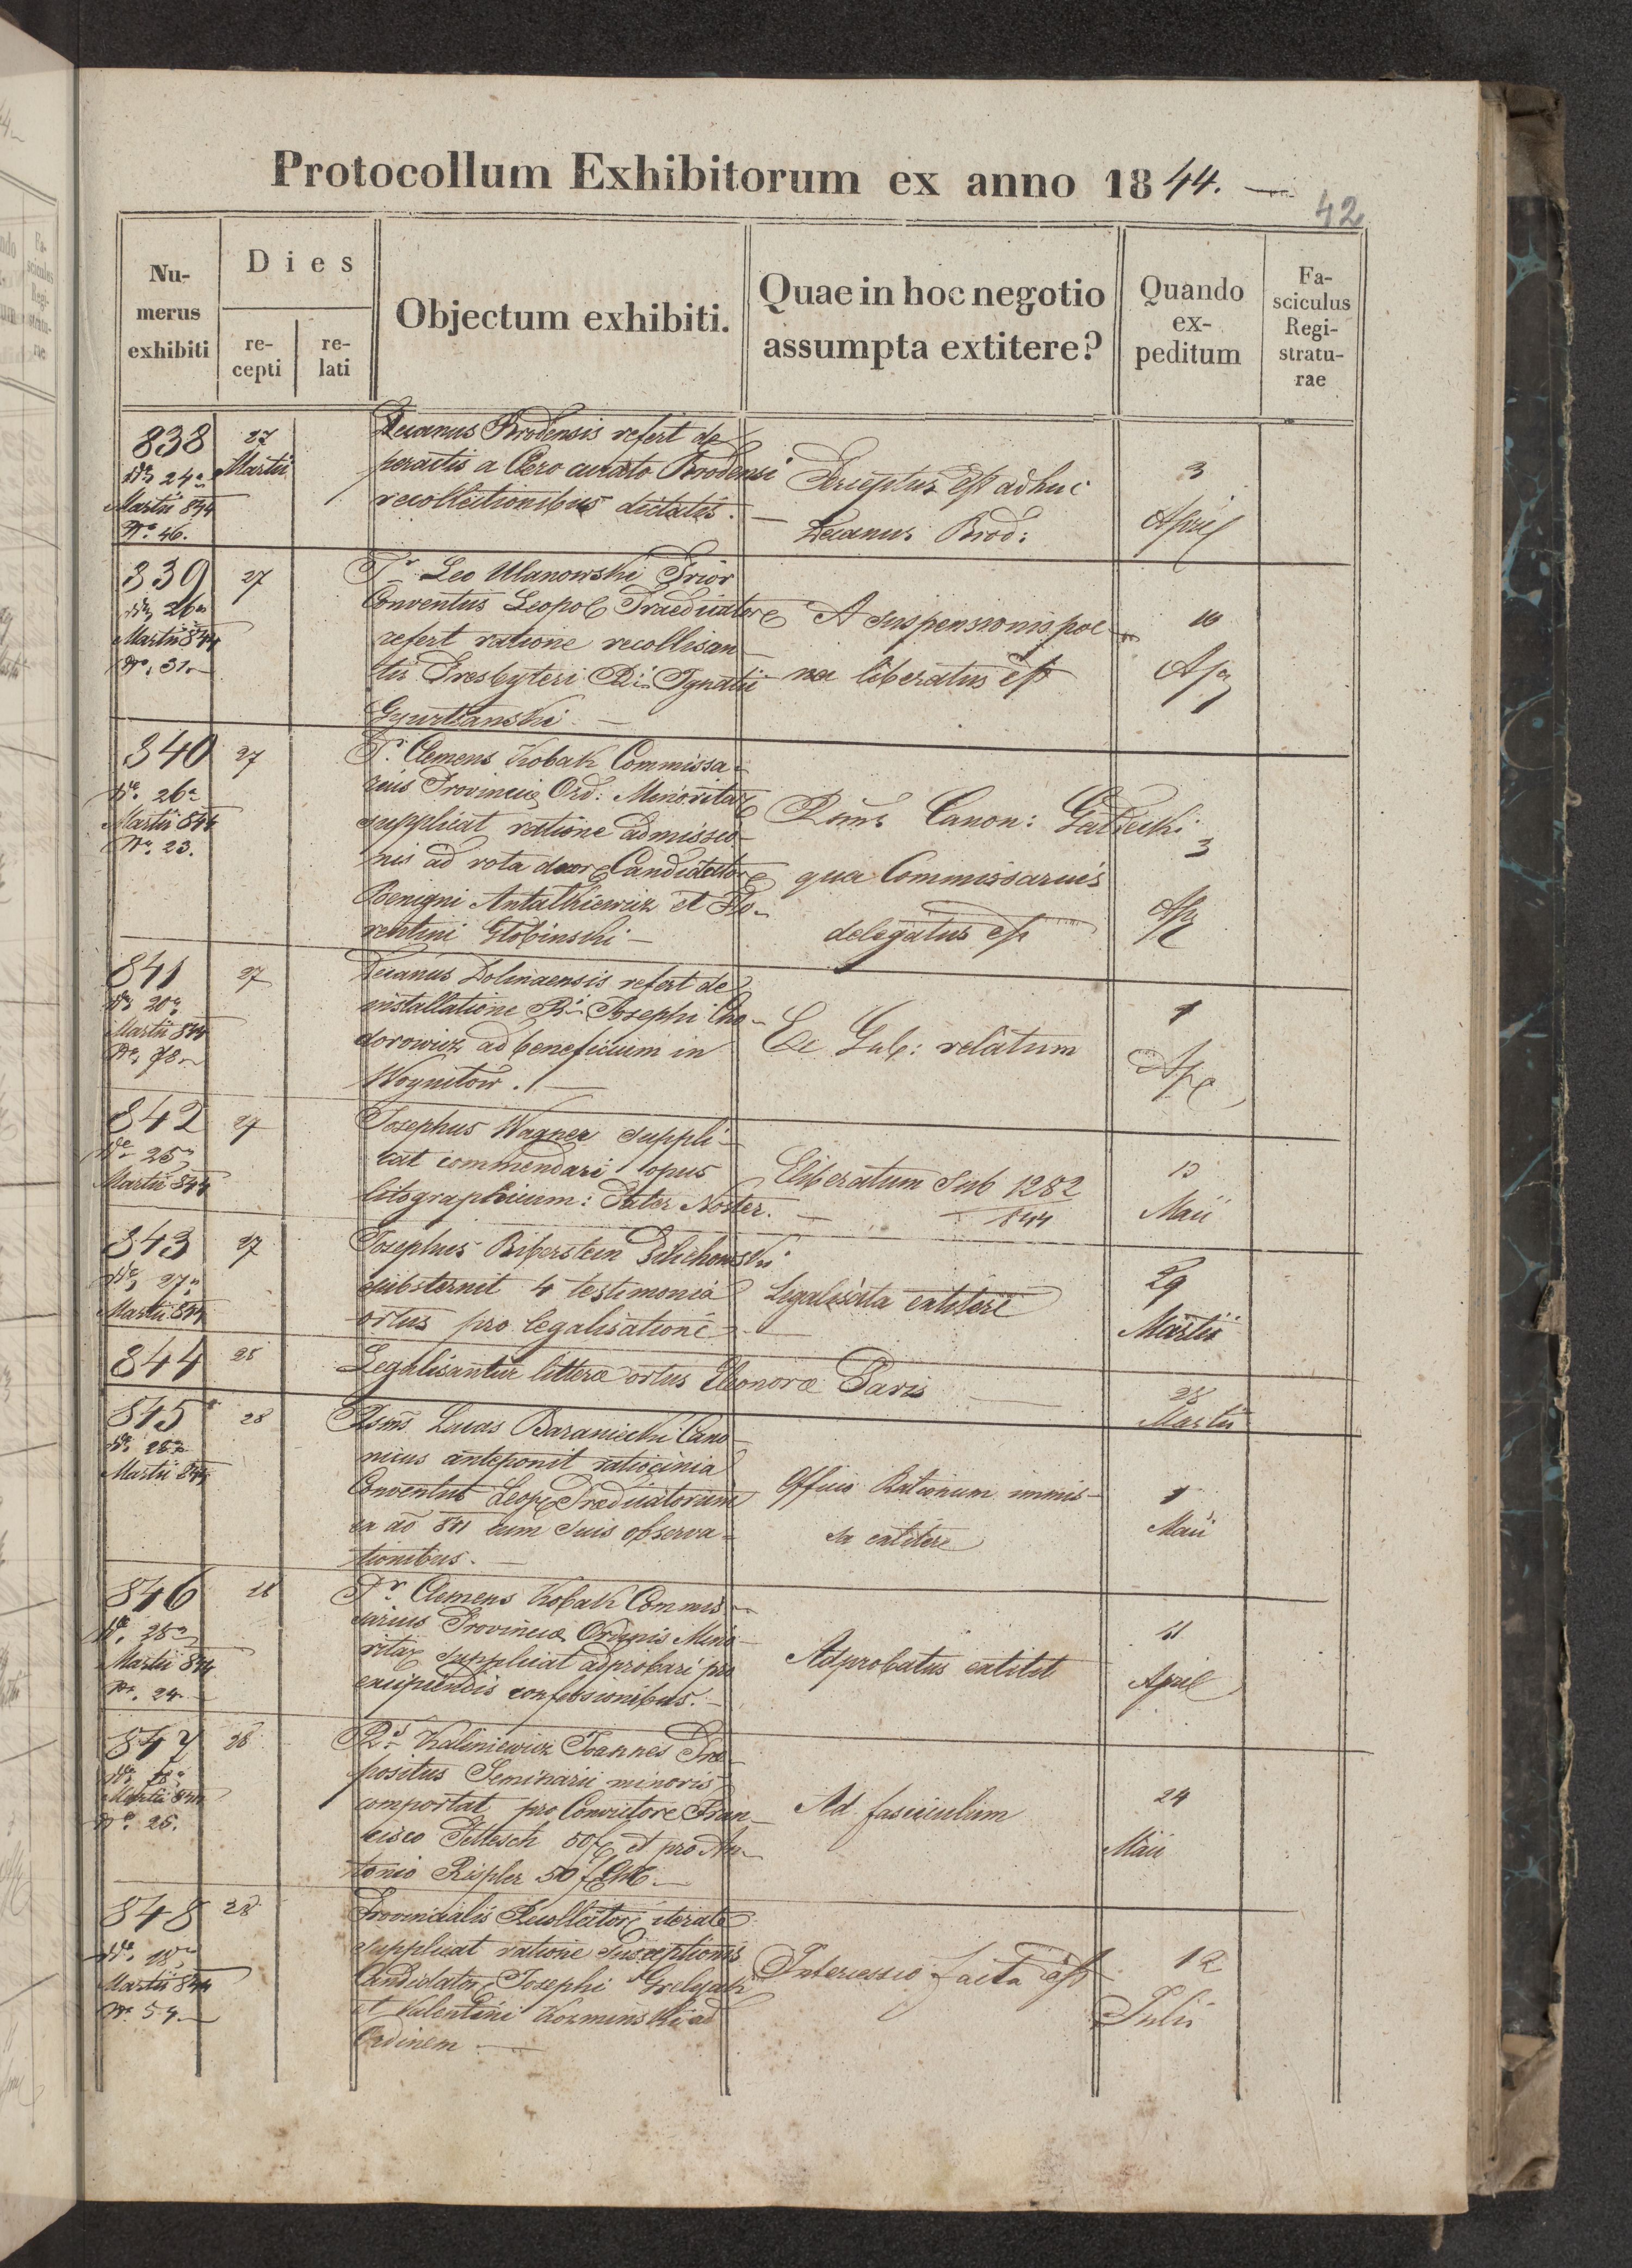 Protocollum Exhibitorum ex anno 1844.
42
Nu-
merus
exhibiti
Dies
re-
cepti
re-
lati
Objectum exhibiti.
Quae in hoc negotio
assumpta extitere?
Quando
ex-
peditum
Fa-
sciculus
Regi-
stratu-
rae
838
24a
Martii 844
No. 46.
27
Martii
Decanus Brodensis refert de
peractis a Clero curato Brodensi
recollectionibus dictatis.
est adhuc
Decanus Brod:
3
April
839
26a
Martii 844
No. 31.
27
Pr Leo Ulanowski Prior
Conventus Leopol Praedicator
refert ratione recollisan-
tis Presbyteri Ri Ignatii
A suspensionis poe-
na liberatus est
10
Apr
840
26a
Martii 844
No. 23.
27
Pr. Clemens Kobak Commissa-
rius Provinciae Ord: Minoritar
supplicat ratione admissio-
nis ad vota duor Candidator
Benigni Antalkiewicz et Flo-
rentini Globinski
Rms Canon: Gałdecki
qua Commissarius
delegatus est
3
Apr
841
20a
Martii 844
No. 78
27
Decanus Dolinaensis refert de
installatione Ri Josephi Cho-
dorowicz ad beneficium in
Woynitow.
Ex. Gub: relatum
1
Apr
842
25a
Martii 844
27
Josephus Wagner suppli-
cat commendari opus
litographicum: Pater Noster.
Eliberatum sub 1282
844
13
Maii
843
27a
Martii 844
27
Josephus Biberstein
substernit 4 testimonia
ortus pro legalisatione
Legalisata extitere
29
Martii
844
28
Legalisantur littera ortus Eleonora Paris
28
Martii
845
28a
Martii 844
28
Rsms Lucas Baraniecki Cano-
nicus anteponit ratiocinia
Conventus Leopol Praedicatorum
ex ao 841 cum suis observa-
tionibus.
Officio Rationum immis-
sa extitere
1
Maii
846
28a
Martii 844
No. 24
28
Pr. Clemens Kobak Commis-
sarius Provinciae Ordinis Mino-
ritar supplicat adprobari pro
excipiendis confessionibus.
Adprobatus extitit
11
April
847
18a
Martii 844
No. 25.
28
Rs Kaliniewicz Joannes Prae-
positus Seminarii minoris
comportat pro Convictore Fran-
cisco Pettesch 50f et pro An-
tonio Rispler 50 f CM.
Ad fasciculum
24
Maii
848
18a
Martii 844
No. 54
28
Provincialis Recollector iterato
supplicat ratione susceptionis
Candidator Josephi Grelyak
et Valentini Kozminski ad
Ordinem
Intercessio facta est
12
Julii